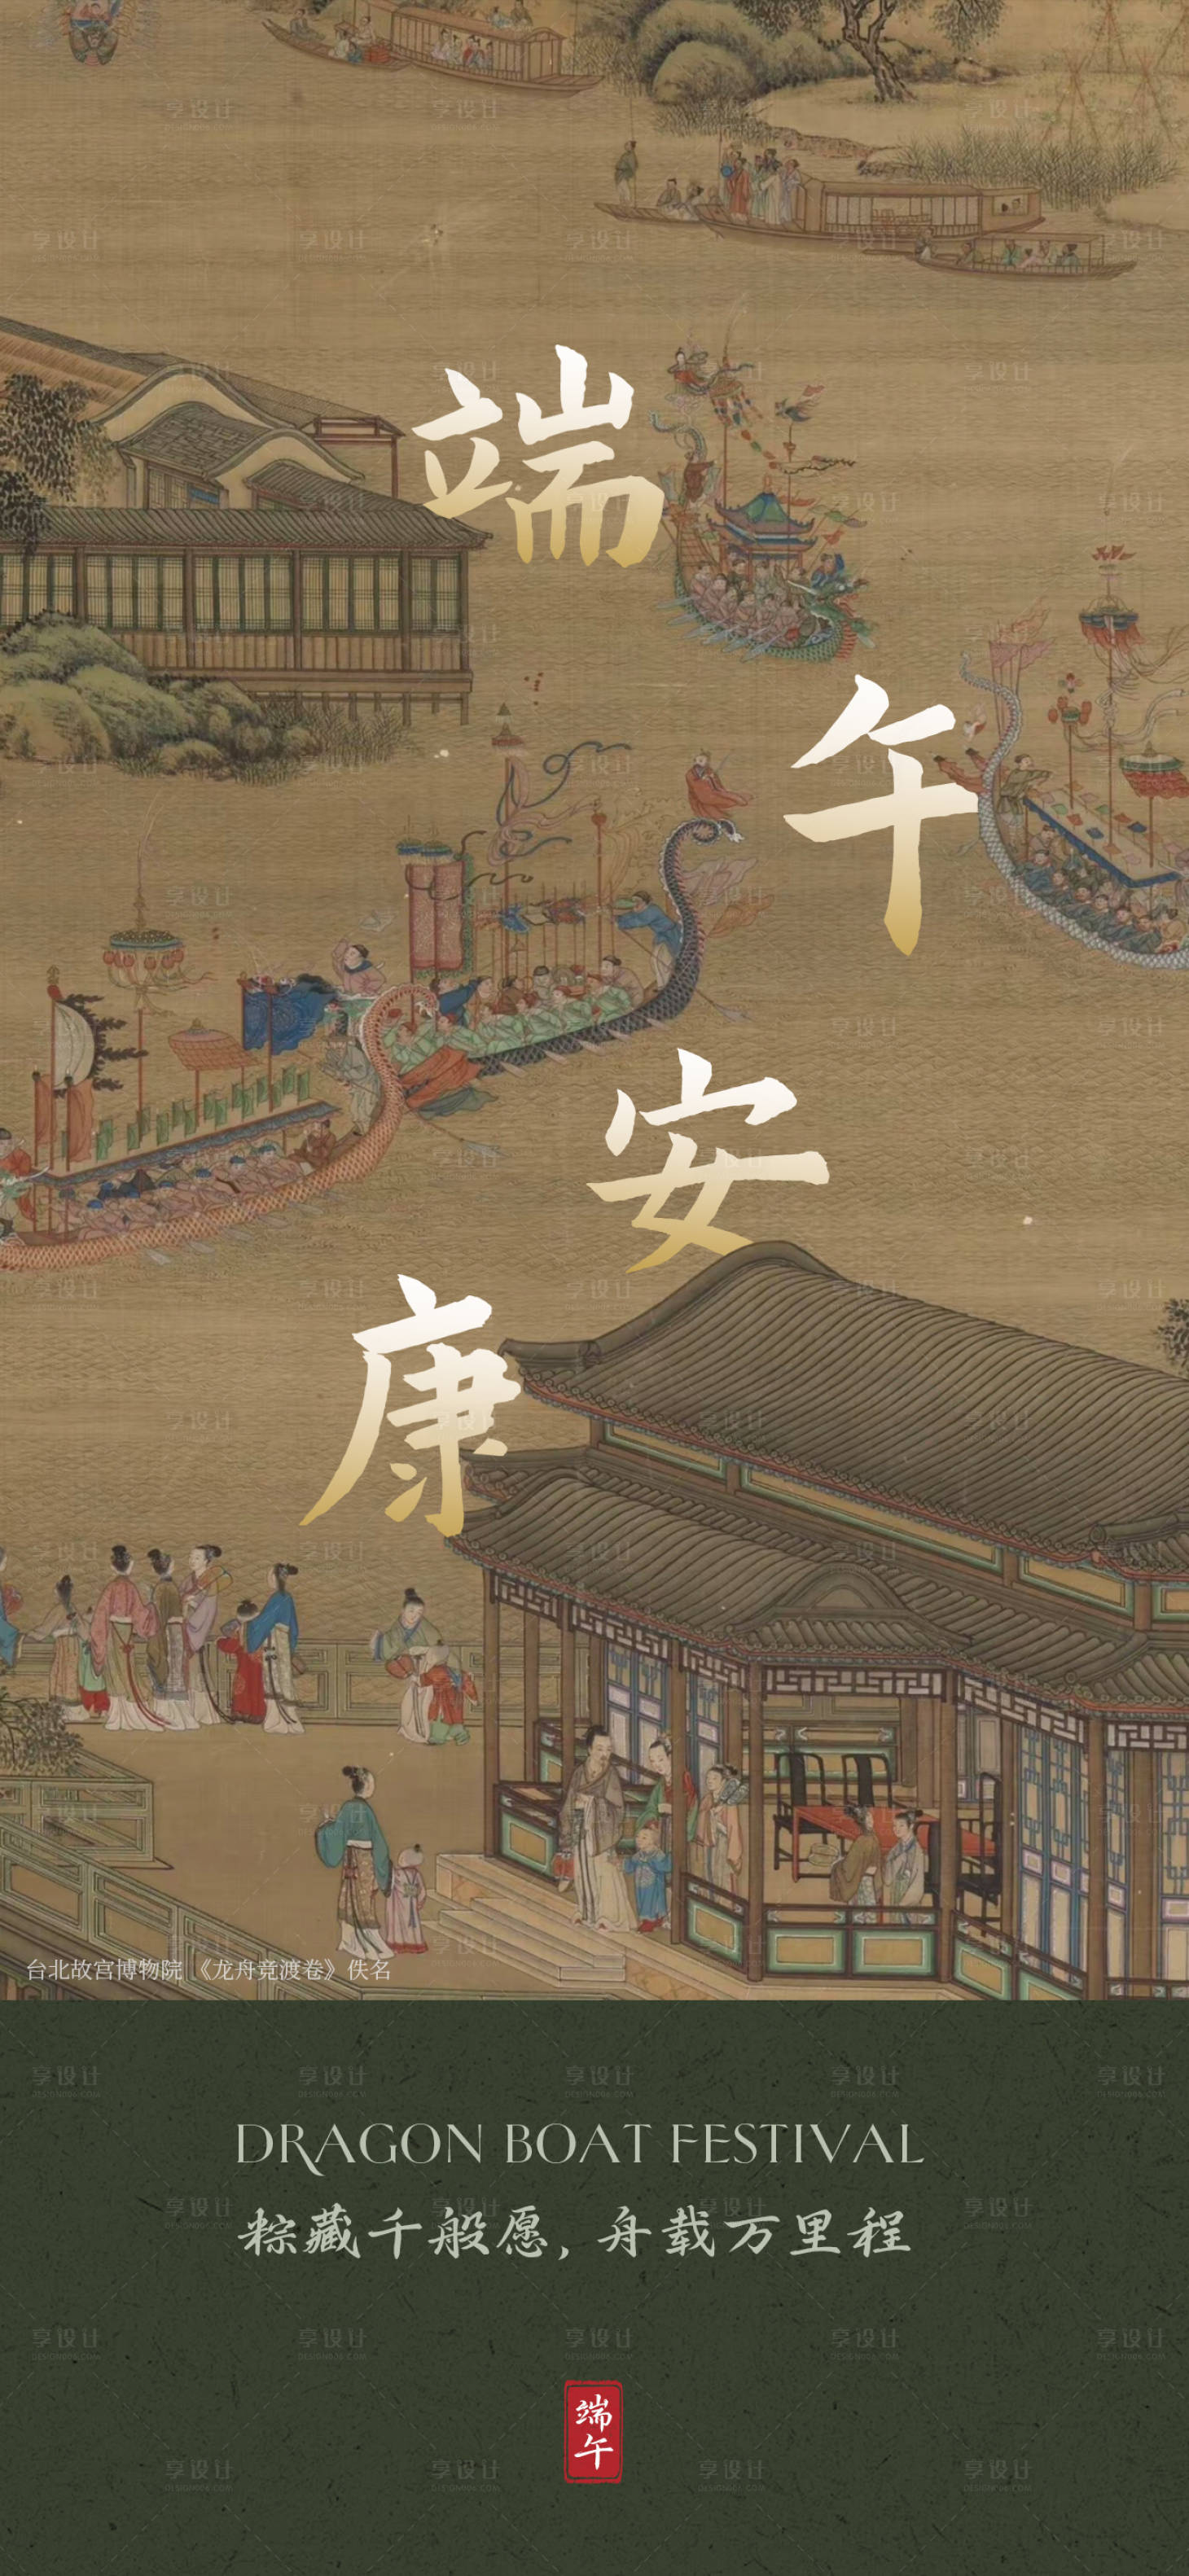 端
午
安
康
台北故宫博物院 《龙舟竞渡卷》佚名
DRAGON BOAT FESTIVAL
粽藏千般愿，舟载万里程
端
午
享设计
DESIGN006.COM